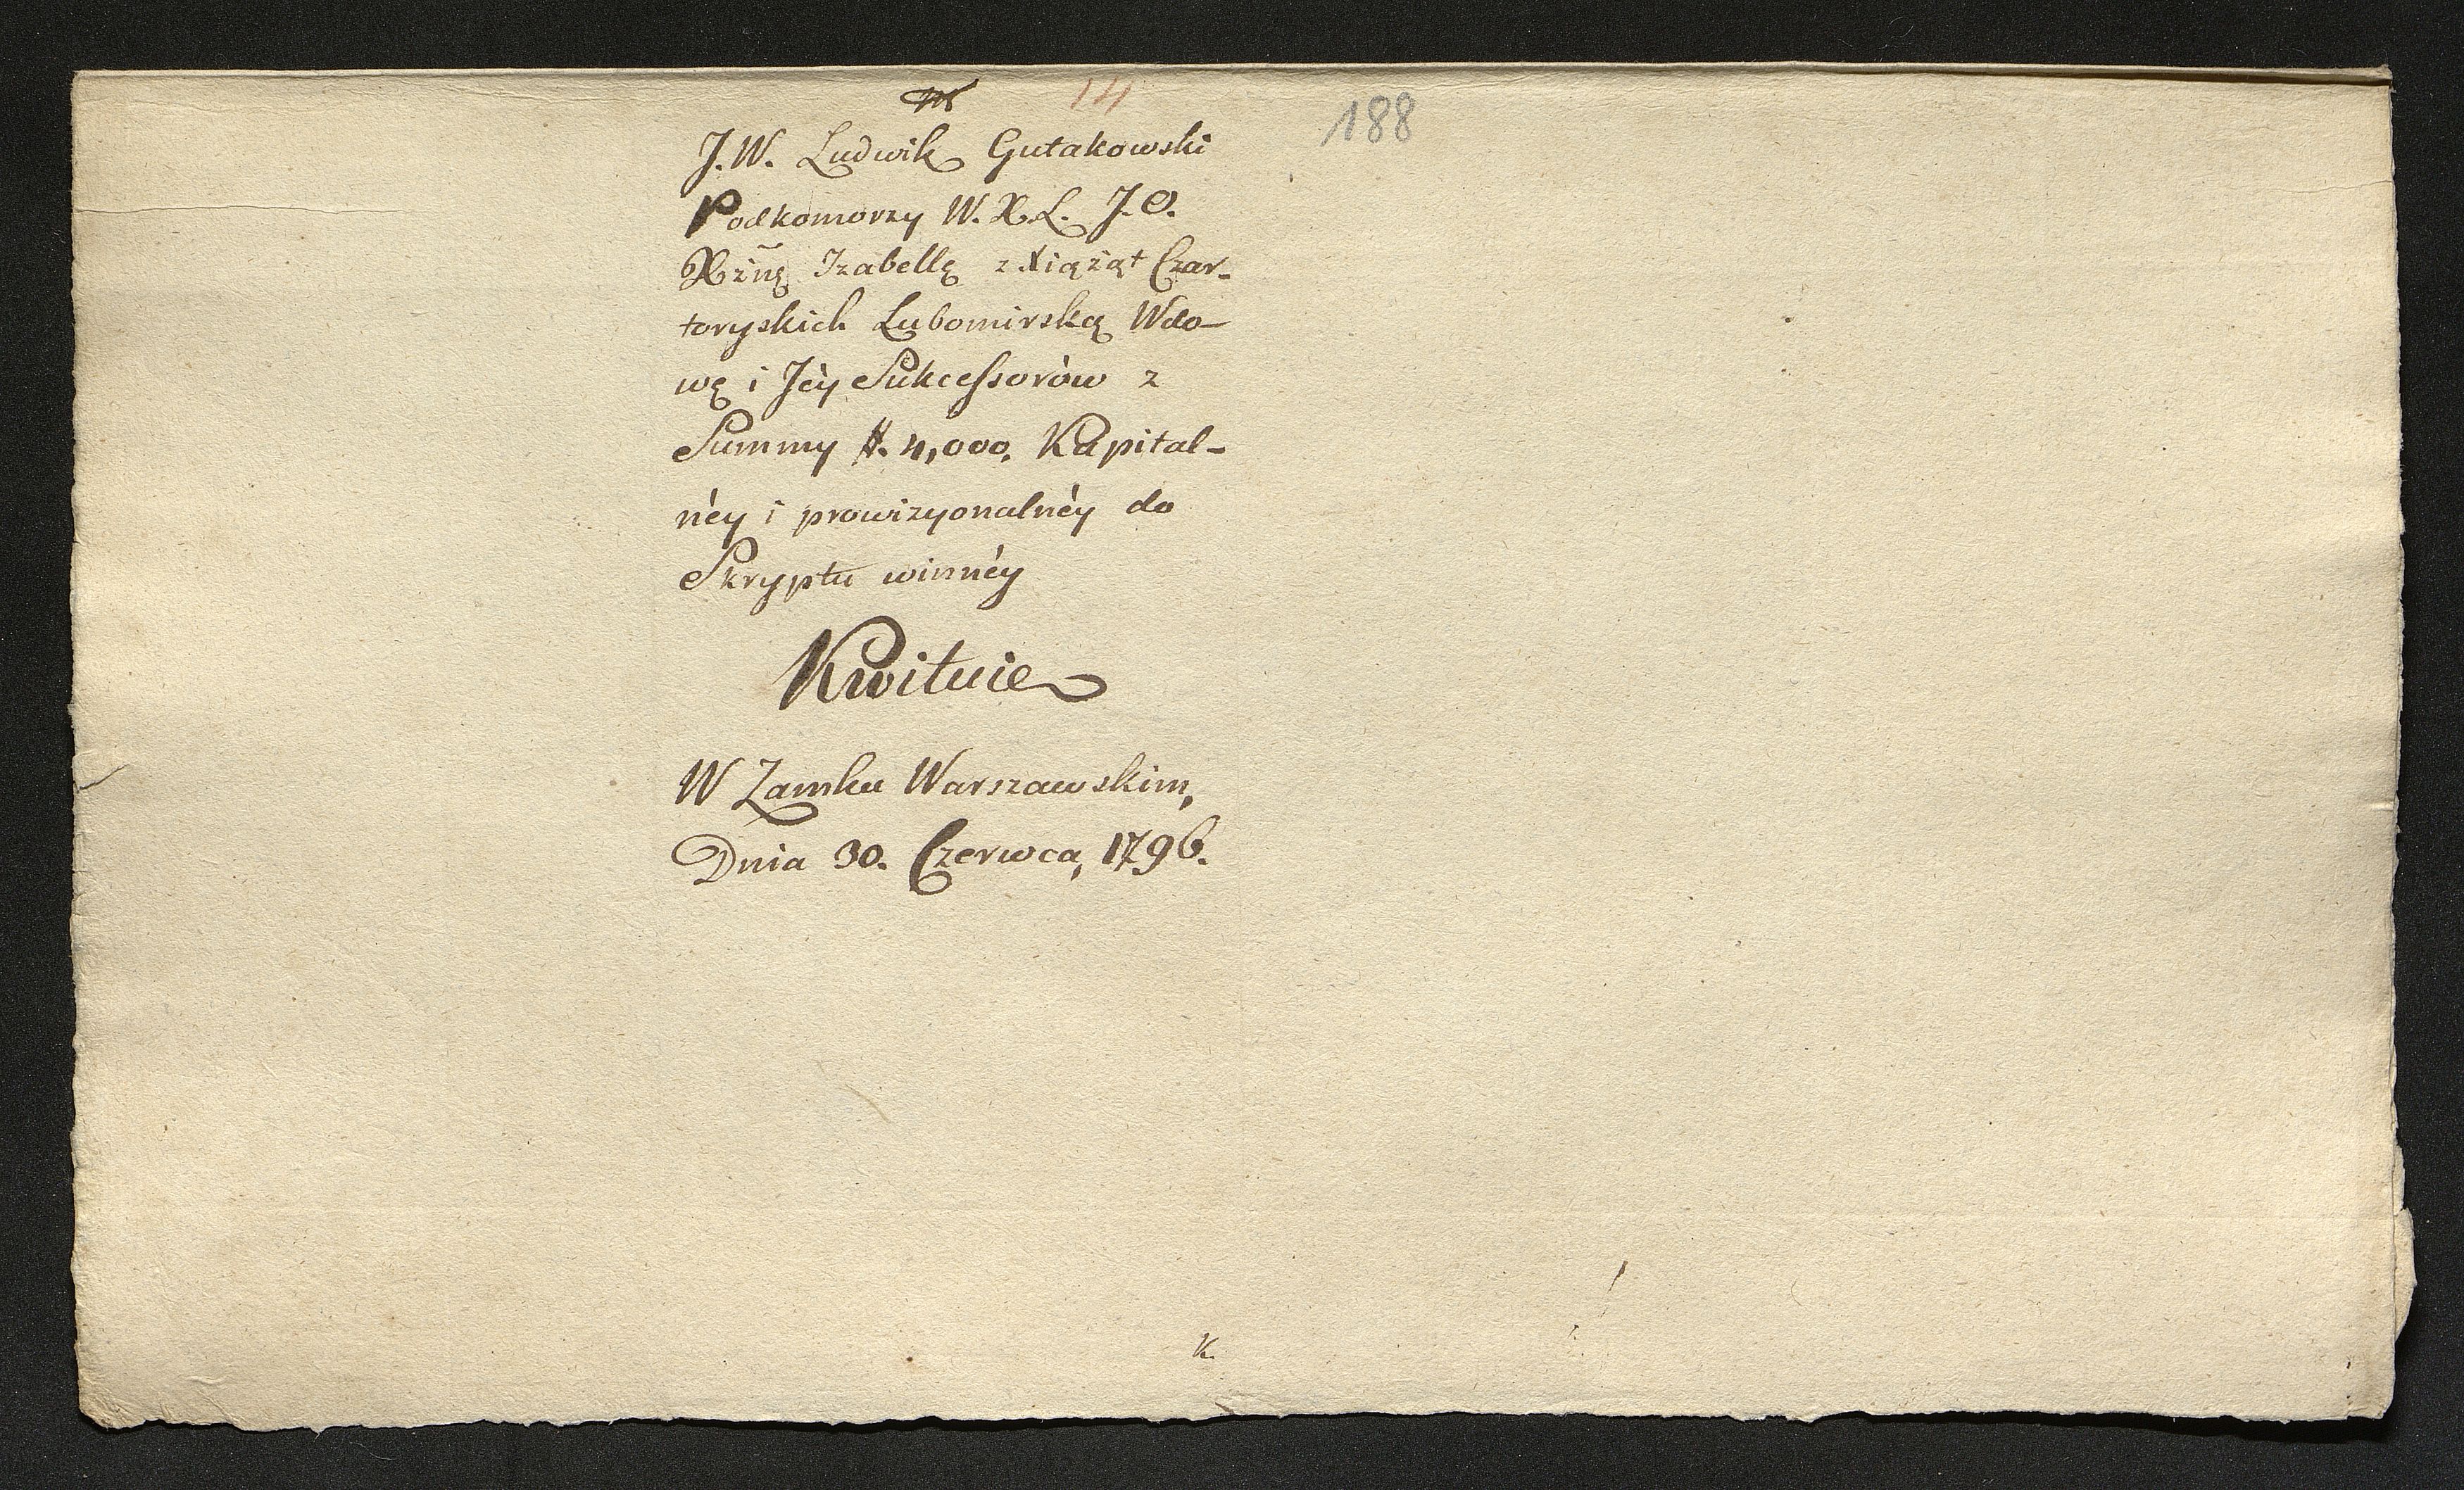 14
188
J. W. Ludwik Gutakowski
Podkomorzy W. X. L. J. O.
Xżnę Izabellę z Xiążąt Czar-
toryskich Lubomirską Wdo-
wę i Jéy Sukcessorów z
Summy #. 4,000. Kapital-
néy i prowizyonalnéy do
Skryptu winnéy
Kwituie
W Zamku Warszawskim,
Dnia 30. Czerwca, 1796.
K.